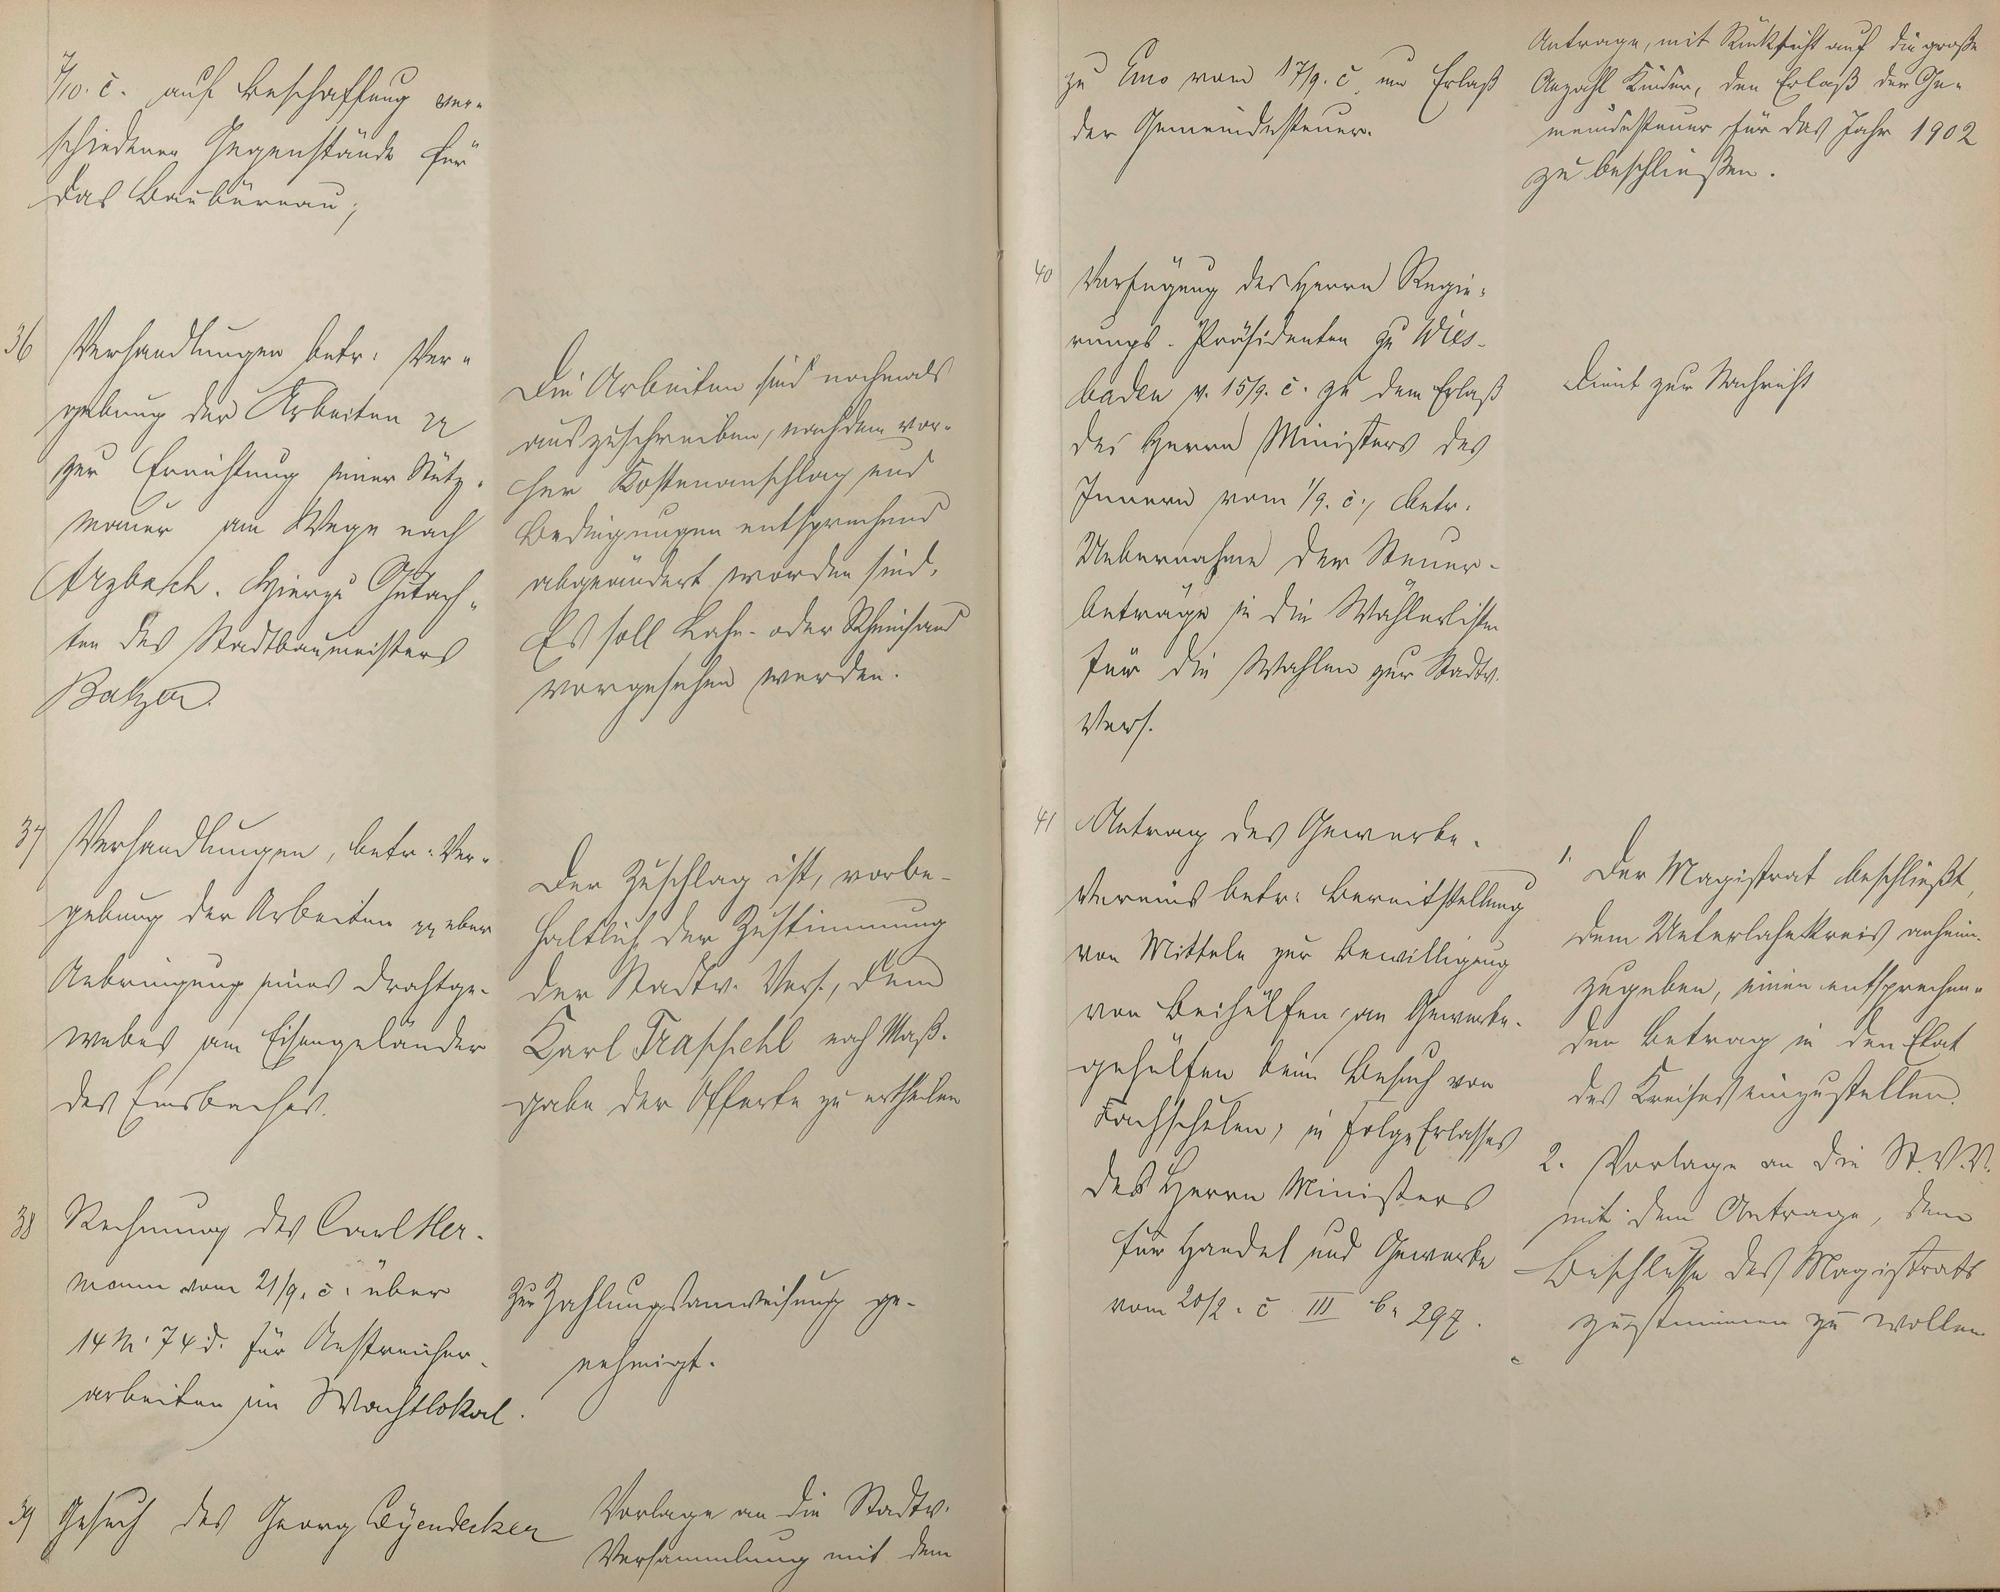 7/10. c. auf Beschaffung ver-
schiedener Gegenstände für
das Baubüreau;
36 Verhandlungen betr. Ver-
gebung der Arbeiten
zur Errichtung einer Stütz-
mauer am Wege nach
Arzbach. Hierzu Gutach-
ten des Stadtbaumeisters
Balzer.
Die Arbeiten sind nochmals
auszuschreiben, nachdem vor-
her Kostenanschlag und
Bedingungen entsprechend
abgeändert worden sind.
Es soll Lahn- oder Rheinsand
vorgesehen werden.
37 Verhandlungen, betr. Ver-
gebung der Arbeiten
Anbringung eines Drahtge-
webes am Eisengeländer
des Emsbaches.
Der Zuschlag ist, vorbe-
haltlich der Zustimmung
der Stadtv. Vers., dem
Karl nach Maß-
gabe der Offerte zu ertheilen
38 Rechnung des Carl Her-
mann vom 21/9. c. über
14 M. 74 d. für Anstreicher-
arbeiten im Wachtlokal.
Zur Zahlungsanweisung ge-
nehmigt.
39 Gesuch des Georg Leyendecker
Vorlage an die Stadtv.
Versammlung mit dem
zu Ems vom 17/9. c. um Erlaß
der Gemeindesteuer.
Antrage, mit Rücksicht auf die große
Anzahl Kinder, den Erlaß der Ge-
meindesteuer für das Jahr 1902
zu beschließen.
40 Verfügung des Herrn Regie-
rungs-Präsidenten zu Wies-
baden v. 15/9. c. zu dem Erlaß
des Herrn Ministers des
Innern vom 1/9. c., betr.
Uebernahme der Steuer-
beträge in die Wählerlisten
für die Wahlen zur Stadtv.
Vers.
Dient zur Nachricht
41 Antrag des Gewerbe-
Vereins betr. Bereitstellung
von Mitteln zur Bewilligung
von Beihülfen an Gewerbe-
gehülfen beim Besuch von
Fachschulen, in Folge Erlasses
des Herrn Ministers
für Handel und Gewerbe
vom 20/2. c. III b. 297.
1. Der Magistrat beschließt,
dem Unterlahnkreis anheim-
zugeben, einen entsprechen-
den Betrag in den Etat
des Kreises einzustellen.
2. Vorlage an die St.V.V.
mit dem Antrage, dem
Beschlusse des Magistrats
zustimmen zu wollen